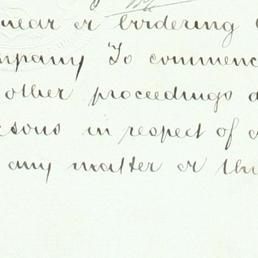 near or bordering
mpany To commenc
other proceedings a
rsons in respect of a
any matter or thi